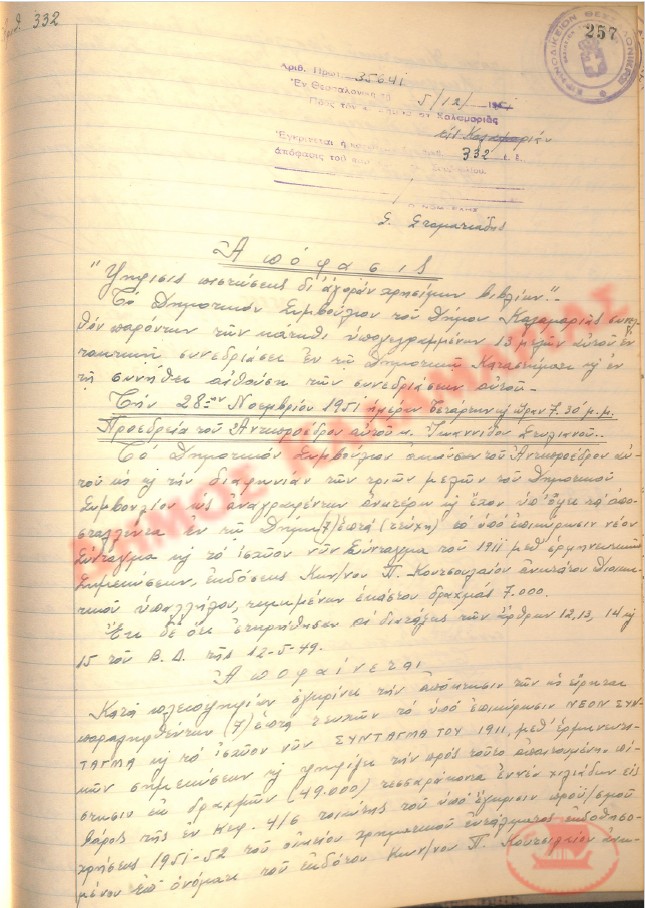 Αριθ. 332
257
ΕΙΡΗΝΟΔΙΚΕΙΟΝ ΘΕΣΣΑΛΟΝΙΚΗΣ
Αριθ. Πρωτ. 35641
Ἐν Θεσσαλονίκῃ τῇ 5/12/
Πρὸς τὸν Καλαμαριᾶς
εἰς Καλαμαριάν
Ἐγκρίνεται ἡ 332 ἐ. ἔ.
ἀπόφασις τοῦ
Σ. Σταματιάδης
Ἀπόφασις
"Ψήφισις πιστώσεως δι' ἀγορὰν χρησίμων βιβλίων".-
Τὸ Δημοτικὸν Συμβούλιον τοῦ Δήμου Καλαμαριᾶς συνελ-
θὸν παρόντων τῶν κάτωθι ὑπογεγραμμένων 13 μελῶν αὐτοῦ ἐν
τακτικῇ συνεδριάσει ἐν τῷ Δημοτικῷ Καταστήματι κ ἐν
τῇ συνήθει αἰθούσῃ τῶν συνεδριάσεων αὐτοῦ.-
Τὴν 28ην Νοεμβρίου 1951 ἡμέραν Τετάρτην κ ὥραν 7.30 μ.μ.
Προεδρίᾳ τοῦ Ἀντιπροέδρου αὐτοῦ κ. Ἰωαννίδου Στυλιανοῦ..
Τὸ Δημοτικὸν Συμβούλιον ἀκοῦσαν τοῦ Ἀντιπροέδρου αὐ-
τοῦ ὡς κ τὴν διαφωνίαν τῶν τριῶν μελῶν τοῦ Δημοτικοῦ
Συμβουλίου ὡς ἀναγραφέντων ἀνωτέρω κ ἔχον ὑπ' ὄψει τὰ ἀπο-
σταλέντα ἐν τῷ Δήμῳ /7/ ἑπτὰ (τεύχη) τὸ ὑπὸ ἐπικύρωσιν νέον
Σύνταγμα κ τὸ ἰσχῦον νῦν Σύνταγμα τοῦ 1911 μεθ' ἑρμηνευτικῶν
Σημειώσεων, ἐκδόσεως Κων/νου Π. ἀνωτάτου διοικη-
τικοῦ ὑπαλλήλου, τιμωμένων ἑκάστου δραχμὰς 7.000.
Ἔτι δὲ ὅτι ἐτηρήθησαν αἱ διατάξεις τῶν ἄρθρων 12, 13, 14 κ
15 τοῦ Β.Δ. τῆς 12-5-49.
Ἀποφαίνεται
Κατὰ πλειοψηφίαν ἐγκρίνει τὴν ἀπόκτησιν τῶν ὡς εἴρηται
παραληφθέντων (7) ἑπτὰ τευχῶν τὸ ὑπὸ ἐπικύρωσιν ΝΕΟΝ ΣΥΝ-
ΤΑΓΜΑ κ τὸ ἰσχῦον νῦν ΣΥΝΤΑΓΜΑ ΤΟΥ 1911, μεθ' ἑρμηνευτι-
κῶν σημειώσεων κ ψηφίζει τὴν πρὸς τοῦτο ἀπαιτουμένην πί-
στωσιν ἐκ δραχμῶν (49.000) τεσσαράκοντα ἐννέα χιλιάδων εἰς
βάρος τῆς ἐν Κεφ. 4/6 τοιαύτης τοῦ ὑπὸ ἔγκρισιν προϋ/σμοῦ
χρήσεως 1951-52 τοῦ οἰκείου χρηματικοῦ ἐντάλματος ἐκδοθησο-
μένου ἐπ' ὀνόματι τοῦ ἐκδότου Κων/νου Π. ἀνω-
ΔΗΜΟΣ ΚΑΛΑΜΑΡΙΑΣ